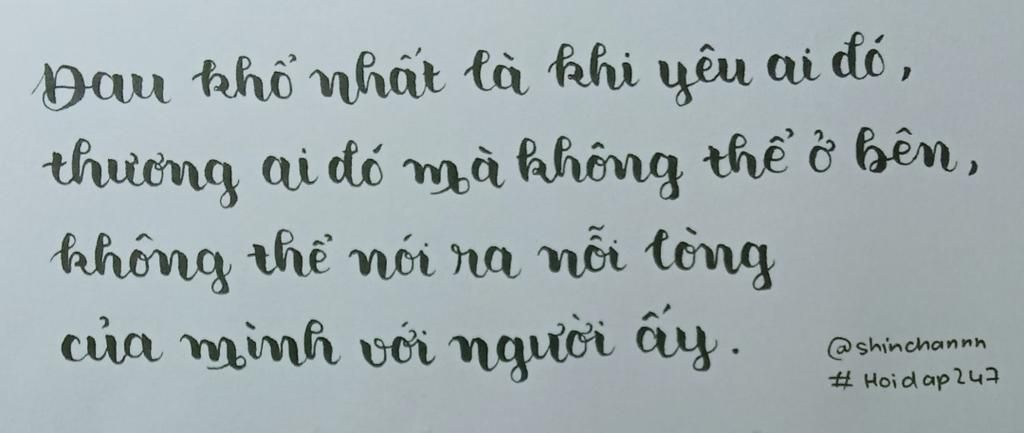 Đau khổ nhất là khi yêu ai đó,
thương ai đó mà không thể ở bên,
không thể nói ra nỗi lòng
của mình với người ấy.
@shinchannn
# Hoidap247